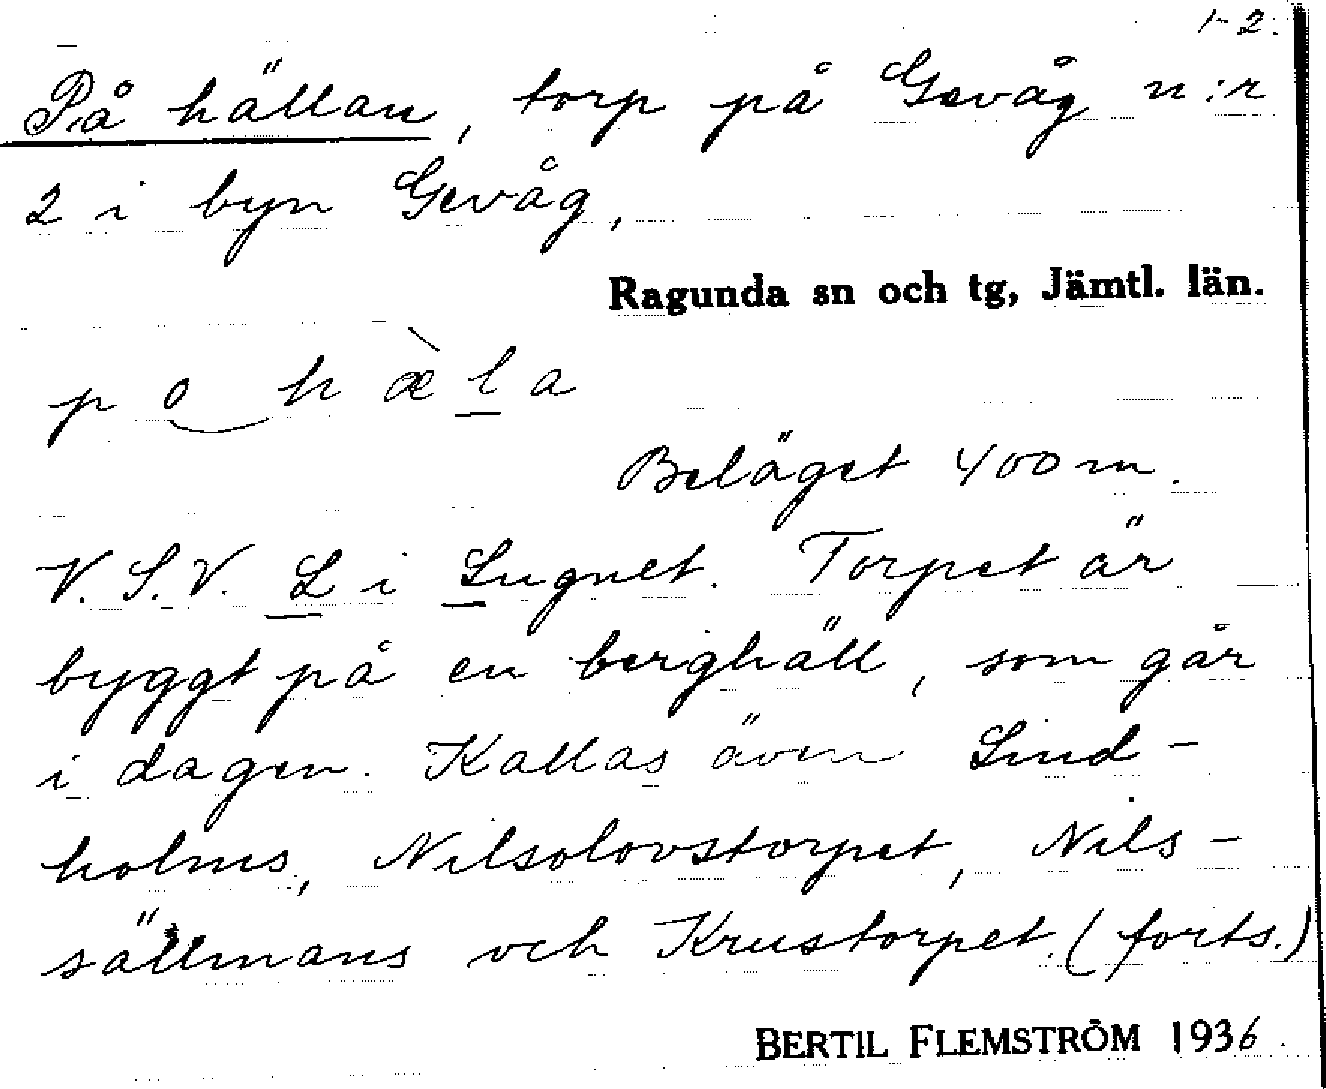 1-2.
På hällan, torp på Gevåg n:r
2 i byn Gevåg,
Ragunda sn och tg, Jämtl. län.
po hæ̀la
Beläget 400 m.
V.S.V. L i Lugnet. Torpet är
byggt på en berghäll, som går
i dagen. Kallas även Lind-
holms, Nilsolovstorpet, Nils-
sällmans och Krustorpet. (forts.)
BERTIL FLEMSTRÖM 1936.